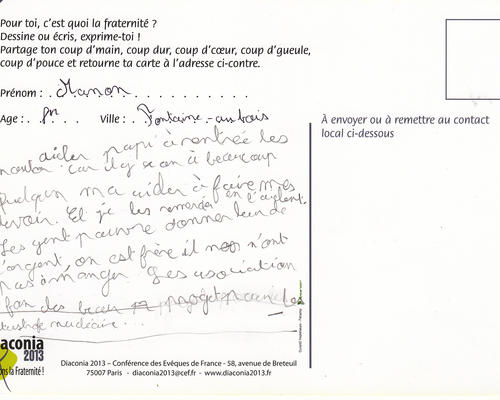 Pour toi, c'est quoi la fraternité ?
Dessine ou écris, exprime-toi !
Partage ton coup d'main, coup dur, coup d'cœur, coup d'gueule,
coup d'pouce et retourne ta carte à l'adresse ci-contre.
Prénom : Manon
Age : Ville : Fontaine-au-bois
À envoyer ou à remettre au contact
local ci-dessous
aider papi à rentrée les
mouton. Car il y en a beaucoup
quelqun ma aider à faire mes
devoir. Et je les en l'aident.
Les gent pauvre donner leur de
l'argent, on est frère il n'ont
pas à manger Les asociation
fon des beau projet pour les
nucléaire...
Diaconia
2013
ons la Fraternité !
Diaconia 2013 – Conférence des Evêques de France - 58, avenue de Breteuil
75007 Paris - diaconia2013@cef.fr - www.diaconia2013.fr